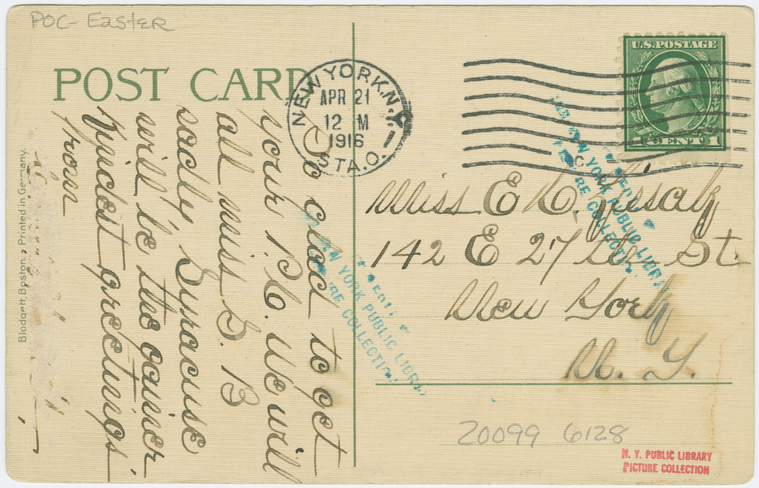 POC- Easter
POST CARD
NEW YORK, N.Y.
APR 21
12 M
1916
STA. O.
U.S. POSTAGE
CENTS
So glad to get
your P.K. We will
all miss S. B
sadly Syracuse
will be the gainer
Kindest greetings
from
Miss E
142 E 27 St.
New York
N. Y.
NEW YORK PUBLIC LIBRARY
PICTURE COLLECTION
NEW YORK PUBLIC LIBRARY
PICTURE COLLECTION
Blodgett, Boston. Printed in Germany.
20099 6128
N. Y. PUBLIC LIBRARY
PICTURE COLLECTION